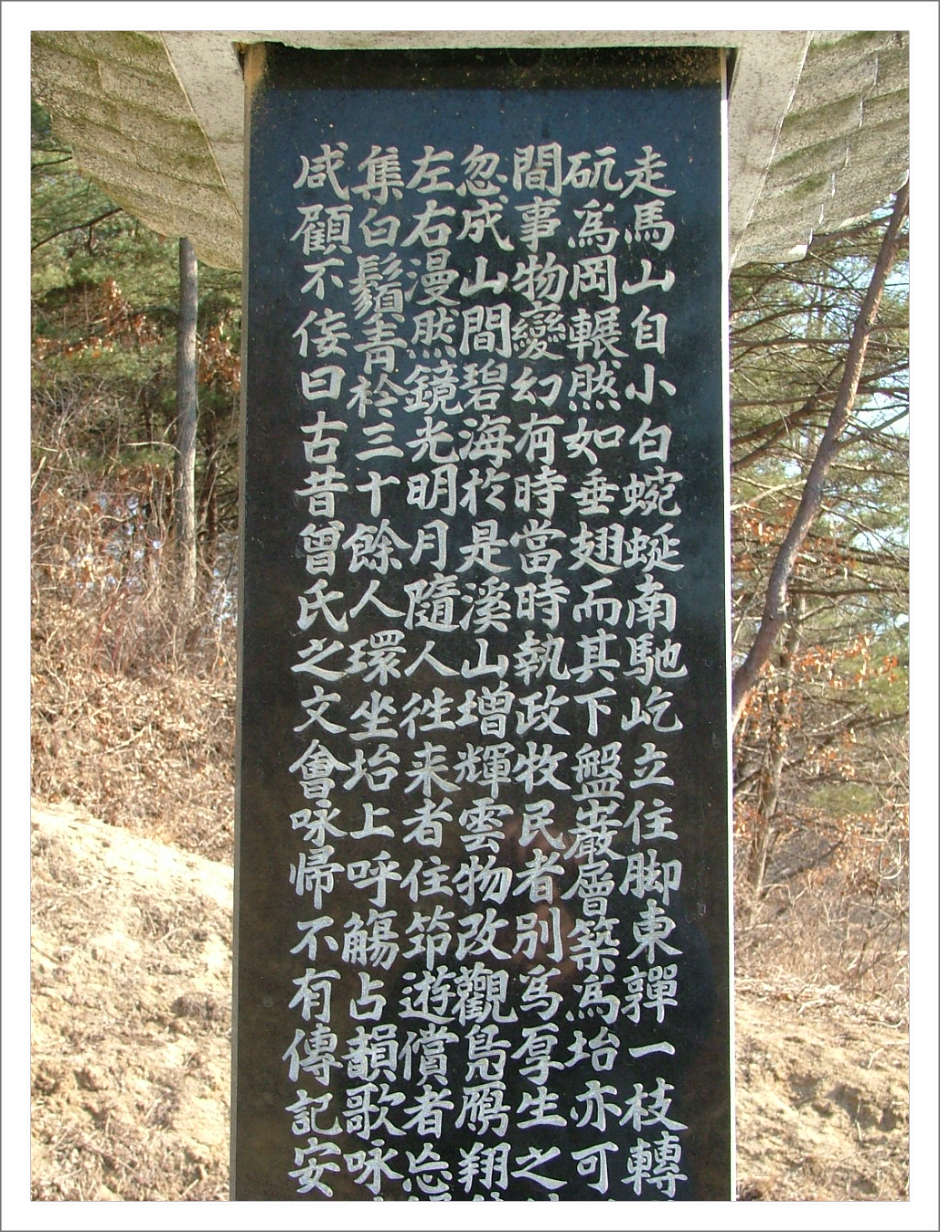 走馬山自小白蜿蜒南馳屹立住脚東嚲一枝轉
矹爲岡輾然如垂翅而其下盤巖層築爲坮亦可
間事物變幻有時當時執政牧民者別爲厚生之
忽成山間碧海於是溪山增輝雲物改觀鳧鴈翔
左右漫然鏡光明月隨人徃来者住筇遊償者忘
集白鬚青衿三十餘人環坐坮上呼觴占韻歌咏
咸顧不侫曰古昔曾氏之文會咏帰不有傳記安